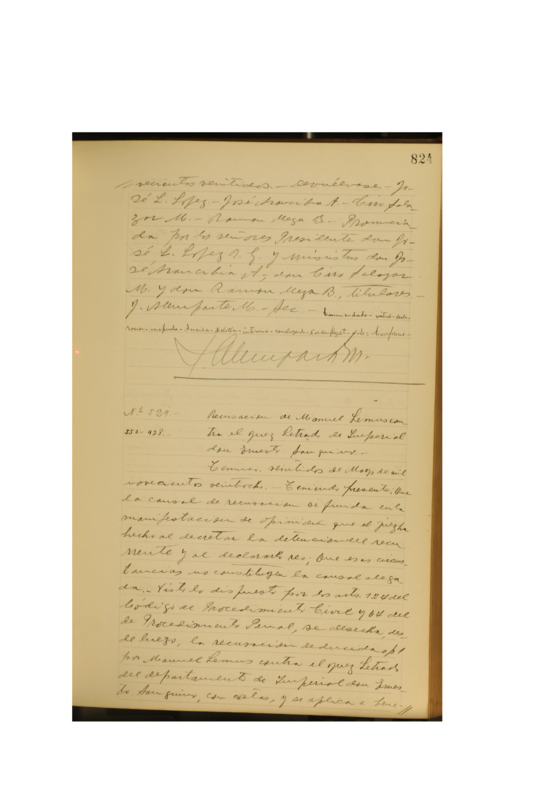 824
vecientos veintidos. — devuélvase — Jo-
sé L. Lopez — José Arancibia A — Ciro Sala-
zar M. — Ramon Mega B — Pronuncia-
da por los señores Presidente don Jo-
sé L. Lopez y Ministros don Jo-
sé Arancibia A, don Ciro Salazar
M. y don Ramon Mega B, titulares —
J. Alemparte M. — Sec —
J. Alemparte M.
Nº 529. — Recusacion de Manuel Lemus con
tra el juez Letrado de Imperial
don Ernesto Sanquinez. —
Temuco, veintidos de Mayo de mil
novecientos veintiocho. — Teniendo presente, Que
la causal de recusacion se funda en la
manifestacion de opinion que el juez ha
hecho al decretar la detencion del recu
rrente y al declararlo reo; Que esas circuns
tancias no constituyen la causal alega
da. — Visto lo dispuesto por los arts. 124 del
Código de Procedimiento Civil y 64 del
de Procedimiento Penal, se desecha, des
de luego, la recusacion deducida
por Manuel Lemus contra el juez Letrado
del departamento de Imperial don Ernes-
to Sanquinez, con costas, y se aplica a